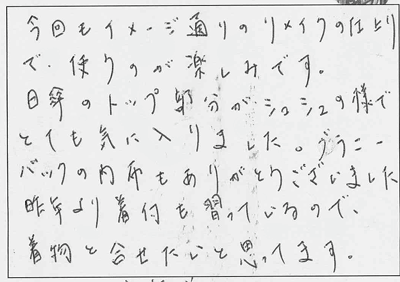 今回もイメージ通りのリメイクの仕上り
で、使うのが楽しみです。
日傘のトップ部分がシュシュの様で
とても気に入りました。グラニー
バックの内布もありがとうございました
昨年より着付も習っているので、
着物と合せたいと思ってます。